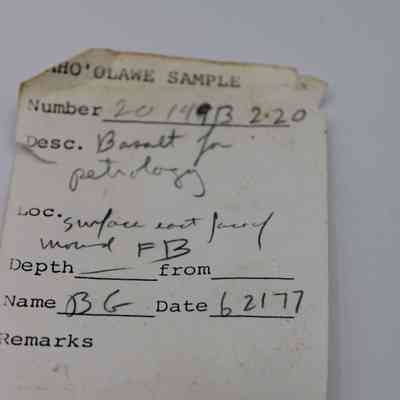 AHO'OLAWE SAMPLE
Number 20 149B 2.20
Desc. Basalt for
petrology
Loc. Surface east face of
mound FB
Depth — from
Name BG Date 62177
Remarks